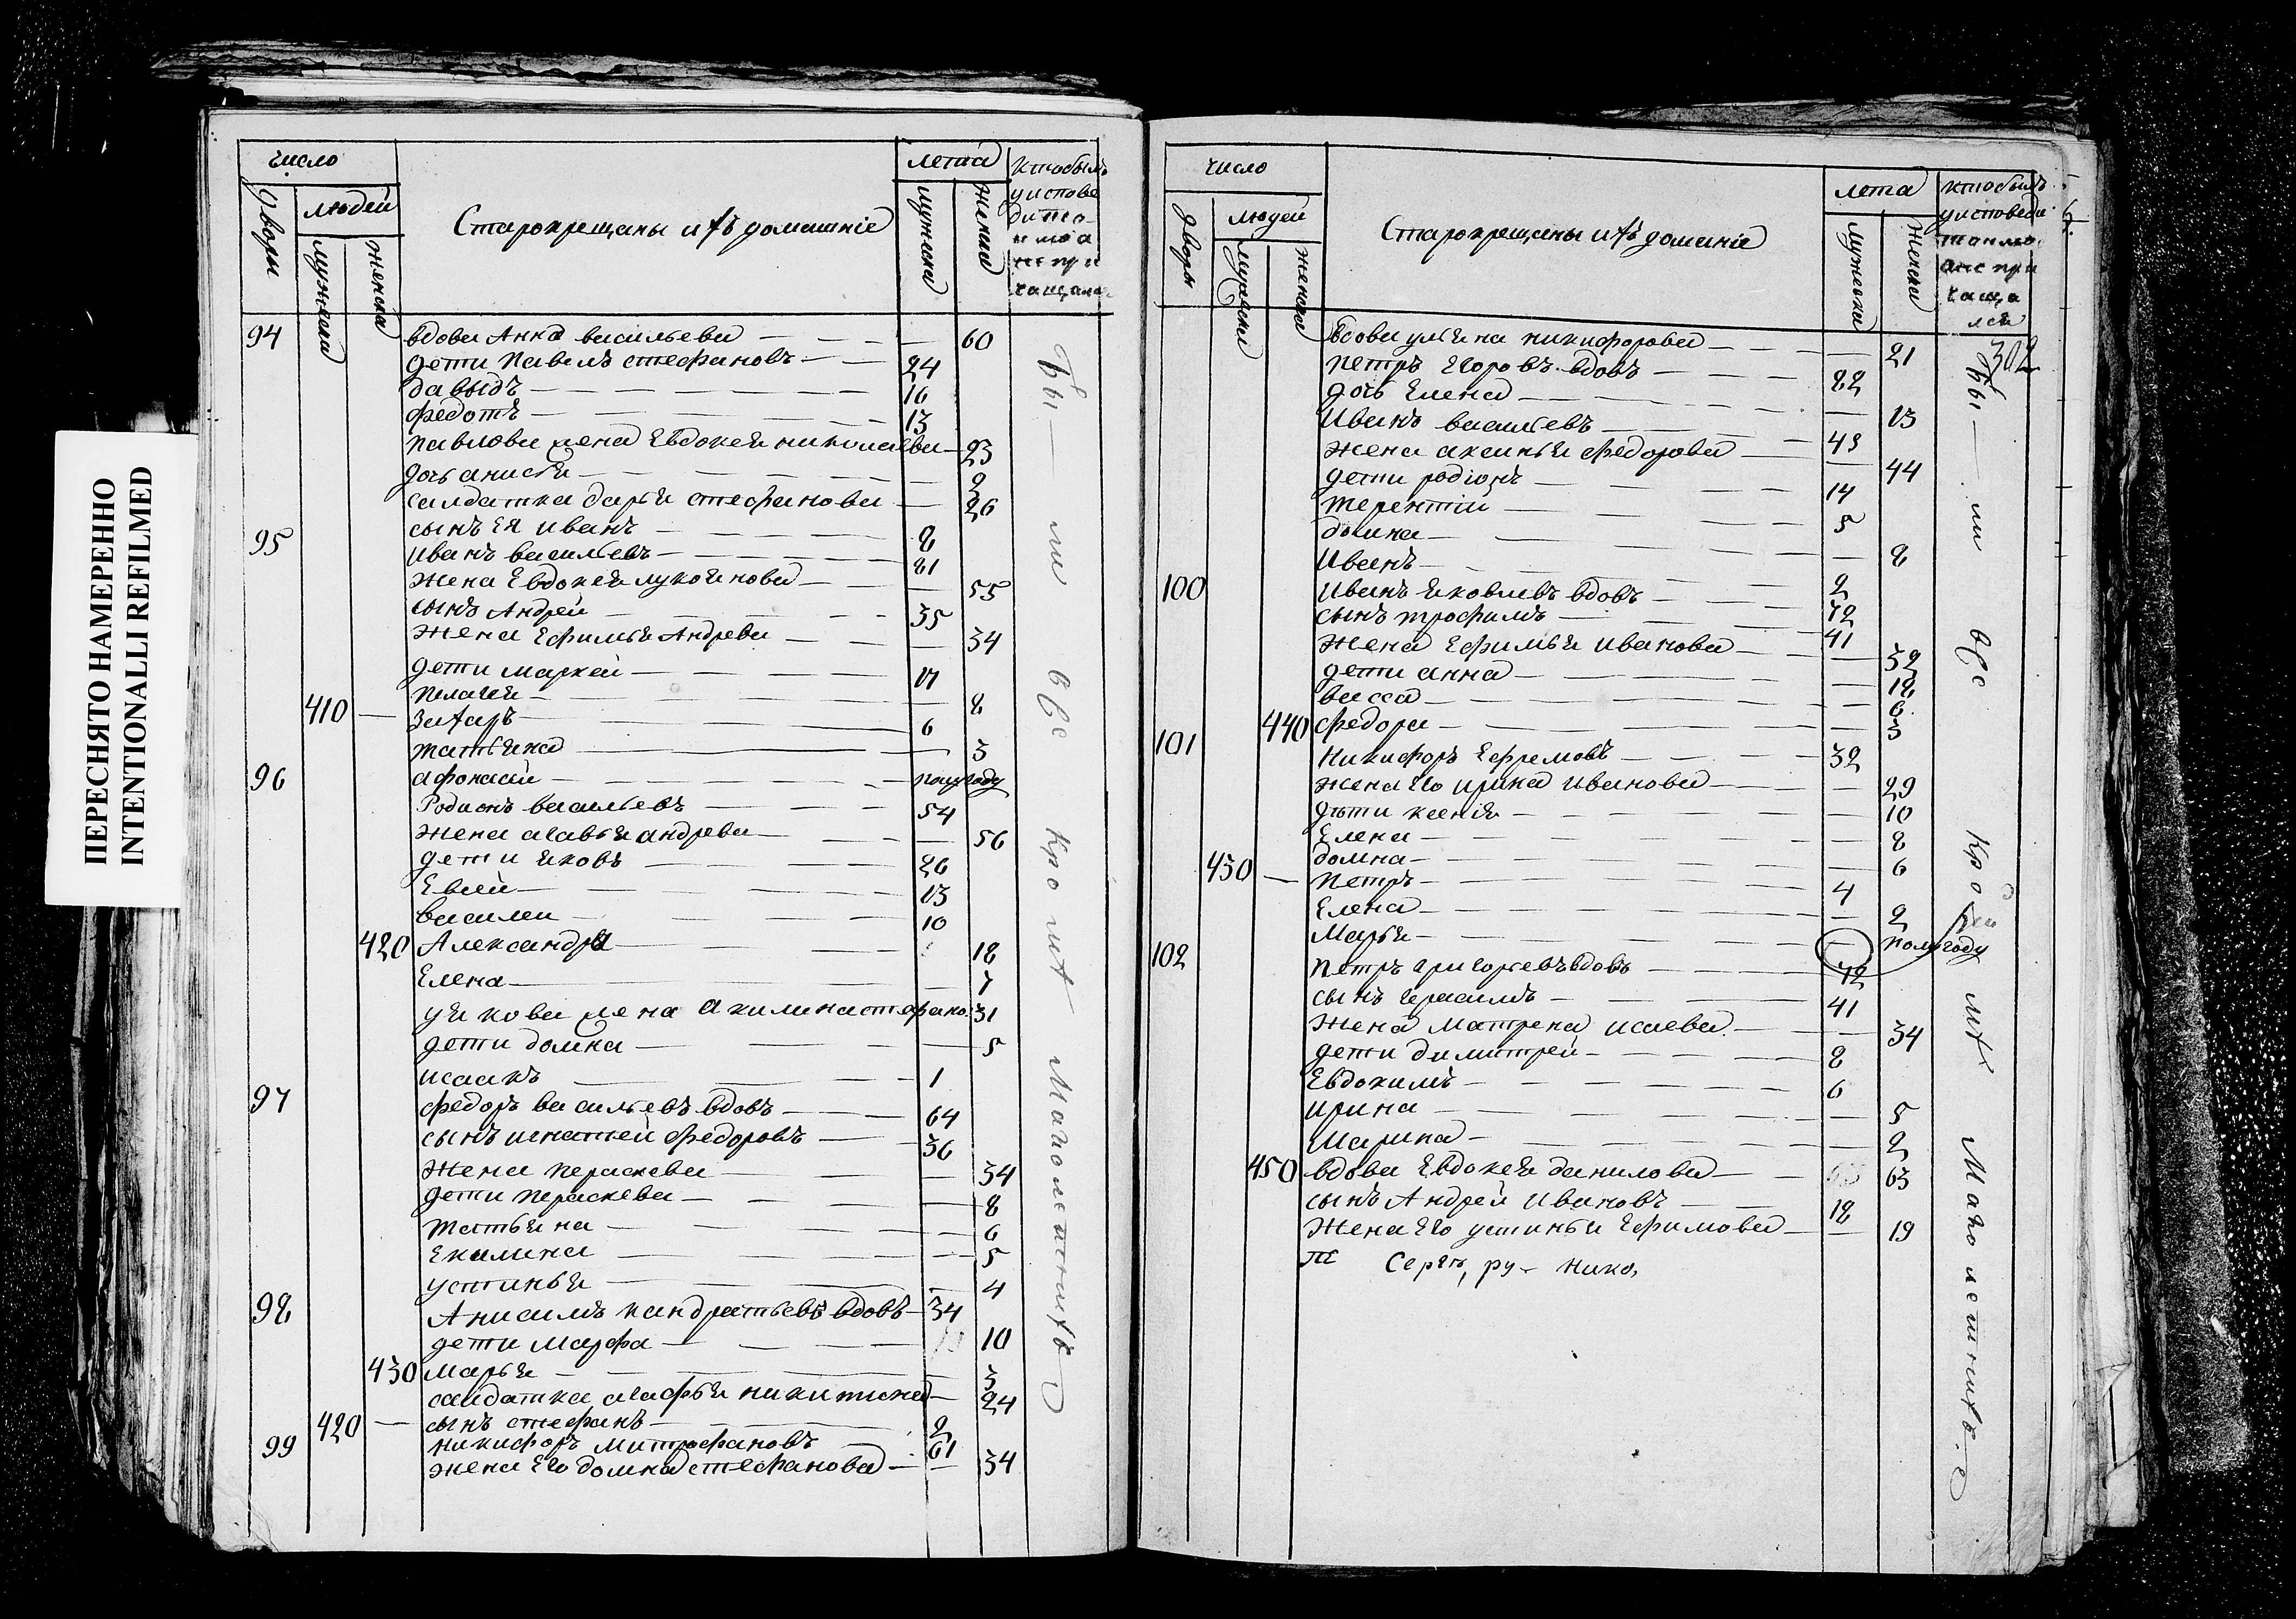 ПЕРЕСНЯТО НАМЕРЕННО
INTENTIONALLI REFILMED
число
дворы
людей
мужеска
женска
Старокрещаны ихъ домашніе
лета
мужеска
женска
кто былъ
94 вдова Анна васильева 60
дети павелъ стефановъ 24
давыдъ 16
федотъ 13
павлова жена Евдокея николаева 23
дочь анисья 2
салдатка дарья стефанова 26
95 сынъ ея иванъ 8
иванъ васильевъ 81
жена Евдокея лукоянова 55
сынъ Андрей 35
жена Ефимья Андреева 34
дети маркей
пелагея 8
410 захаръ 6
татьяна 3
96 афонасий полугоду
Родионъ васильевъ 54
жена агавья андрева 56
дети яковъ 26
Евсей 13
василеи 10
420 Александра 18
Елена 7
у якова жена акилина стефано 31
дети домна 5
исаакъ 1
97 федоръ васильевъ вдовъ 64
сынъ игнатей федоровъ 36
жена параскева 34
дети параскева 8
татьяна 6
Екилина 5
устинья 4
98 Анисимъ кандратьевъ вдовъ 34
дети марфа 10
430 марья 3
салдатка агафья никитина 24
420 сынъ стефанъ 2
99 никифоръ митрофановъ 61
жена Его домна стефанова 34
Бы — ли все кроме малолетнихъ
число
дворы
людей
мужеска
женска
Старокрещаны ихъ домашніе
лета
мужеска
женска
кто былъ
302
вдова ульяна никифорова 21
петръ Егоровъ вдовъ 82
дочь Елена 13
Иванъ васильевъ 43
жена аксинья федорова 44
дети родіонъ 14
терентий 5
домна 8
Иванъ 2
100 Иванъ яковлевъ вдовъ 72
сынъ трофимъ 41
жена Ефимья иванова 32
дети анна 12
васса 6
440 федора 3
101 никифоръ Ефремовъ 32
жена Его ирина иванова 29
дѣти ксенія 10
Елена 8
домна 6
430 петръ 4
Елена 2
Марья полугоду
102 петръ григорьевъ вдовъ 72
сынъ герасимъ 41
жена матрена исаева 34
дети димитрей 8
Евдокимъ 6
ирина 5
Марина 2
450 вдова Евдокея данилова 63
сынъ Андрей ивановъ 18
жена Его устинья Ефимова 19
Серги, ру- нико,
Бы — ли все кро мѣ малолетнихъ